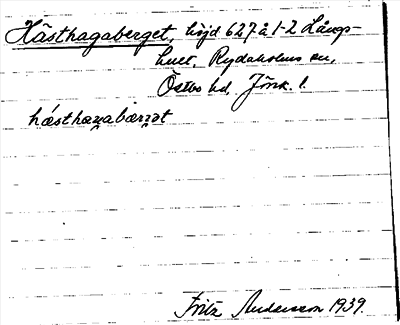 Hästhagaberget, höjd 627 å 1-2 Långö-
huet, Rydaholms sn,
Östbo hd, Jönk. l.
hásthagabærgət
Fritz Andersson 1939.